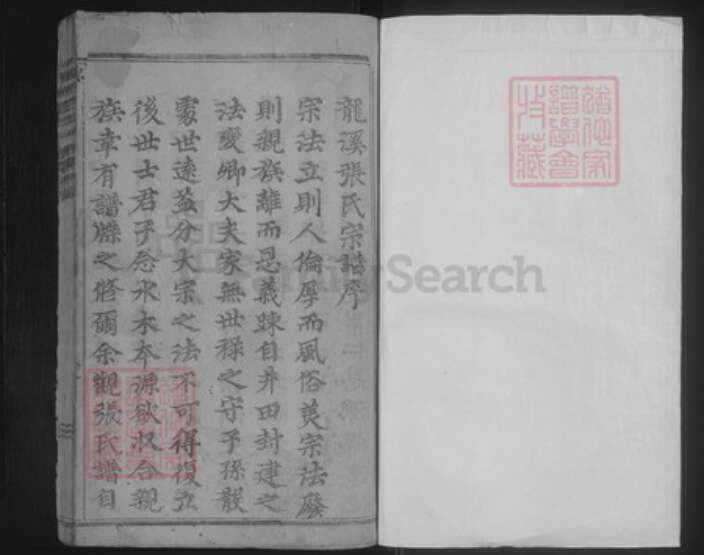 龍溪張氏宗譜序
宗法立則人倫厚而風俗美宗法廢
則親族離而恩義踈自井田封建之
法變卿大夫家無世祿之守子孫散
處世遠益分大宗之法不可得復立
後世士君子念水木本源欲収合親
族幸有譜牒之修爾余觀張氏譜自
猶他家
譜學會
攷藏
FamilySearch